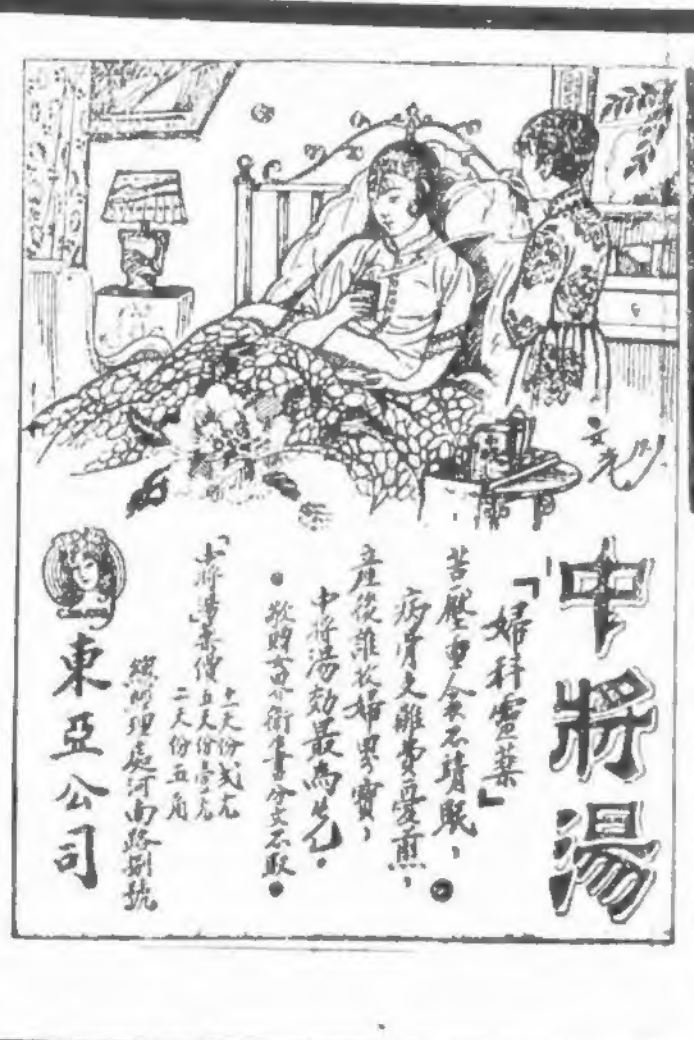 中將湯
「婦科靈藥」
苦壓重衾不靖眠，
病骨支離費憂煎，
產後誰救婦男寶，
中將湯効最為先。
敬贈女界衛生書分文不取
「中將湯」藥價
十二天份弍元
五天份壹元
二天份五角
總經理處河南路捌號
東亞公司